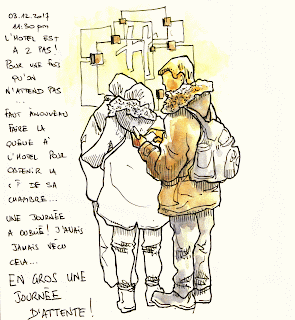 03.12.2017
11:30 pm
L'HOTEL EST
A 2 PAS!
POUR UNE FOIS
QU'ON
N'ATTEND PAS
...
FAUT À NOUVEAU
FAIRE LA
QUEUE A
L'HOTEL POUR
OBTENIR LA
DE SA
CHAMBRE...
UNE JOURNÉE
A OUBLIÉ! J'AVAIS
JAMAIS VÉCU
CELA...
EN GROS UNE
JOURNÉE
D'ATTENTE!